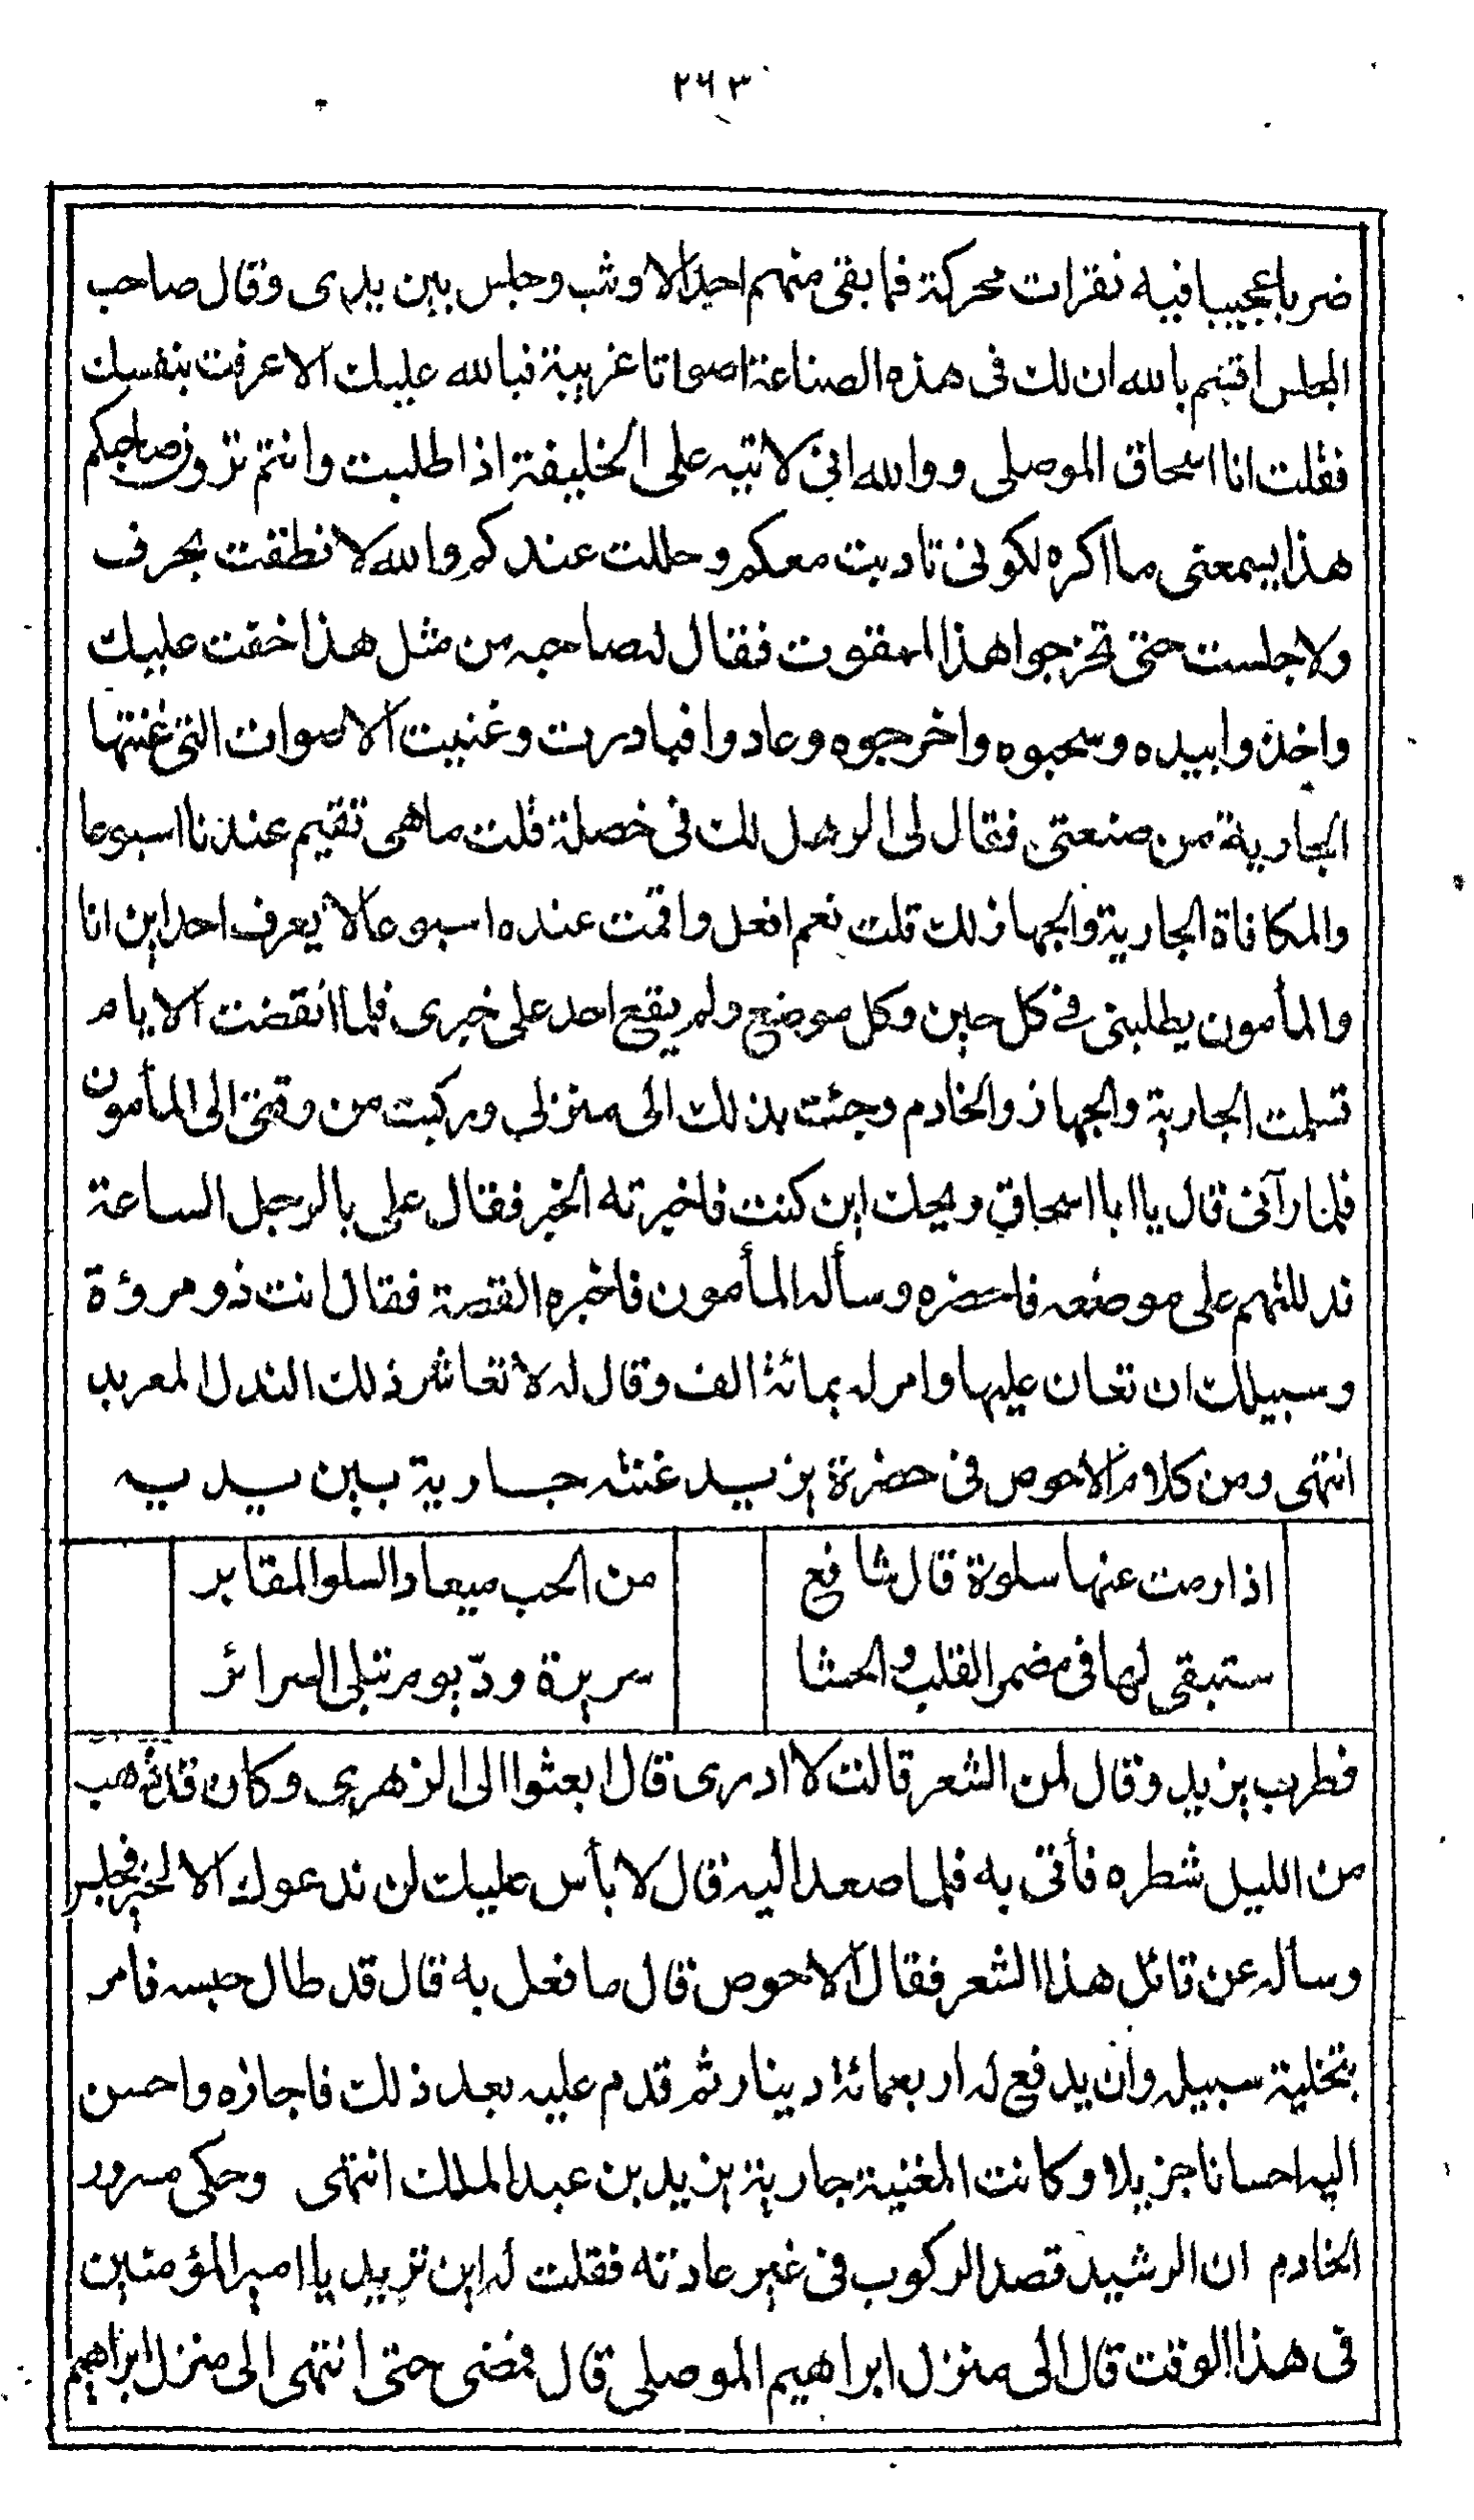 ٢٦٣
ضربا عجيبا فيه نقرات محركة فما بقى منهم احد الا وثب وجلس بين يدى وقال صاحب
المجلس اقسم بالله ان لك فى هذه الصناعة اصواتا غريبة فبالله عليك الا عرفت بنفسك
فقلت انا اسحاق الموصلى ووالله انى لاتيه على الخليفة اذا طلبت وانتم ترون صاحبكم
هذا يسمعنى ما اكره لكونى تادبت معكم وحللت عندكم والله لا نطقت بحرف
ولا جلست حتى تخرجوا هذا الممقوت فقال له صاحبه من مثل هذا خفت عليك
واخذوا بيده وسحبوه واخرجوه وعادوا فبادرت وغنيت الاصوات التى غنتها
الجارية من صنعتى فقال لى الرجل لك فى خصلة قلت ما هى تقيم عندنا اسبوعا
والمكافاة الجارية والجهاز لك قلت نعم افعل واقمت عنده اسبوعا لا يعرف احد اين انا
والمأمون يطلبنى فى كل حين وكل موضع ولم يقع احد على خبرى فلما انقضت الايام
تسلمت الجارية والجهاز والخادم وجئت بذلك الى منزلى وركبت من وقتى الى المأمون
فلما رآنى قال يا ابا اسحاق ويحك اين كنت فاخبرته الخبر فقال على بالرجل الساعة
فدللتهم على موضعه فاحضره وسأله المأمون فاخبره القصة فقال انت ذو مروءة
وسبيلك ان تعان عليها وامر له بمائة الف وقال له لا تعاشر ذلك الندل المعربد
انتهى ومن كلام الاحوص فى حضرة يزيد غنته جارية بين يديه
اذا رمت عنها سلوة قال شافع من الحب ميعاد السلو المقابر
ستبقى لها فى مضمر القلب والحشا سريرة ودّ يوم تبلى السرائر
فطرب يزيد وقال لمن الشعر قالت لا ادرى قال ابعثوا الى الزهرى وكان قد ذهب
من الليل شطره فأتى به فلما صعد اليه قال لا بأس عليك لن ندعوك الا لخير فجلس
وسأله عن قائل هذا الشعر فقال الاحوص قال ما فعل به قال قد طال حبسه فامر
بتخلية سبيله وان يدفع له اربعمائة دينار ثم قدم عليه بعد ذلك فاجازه واحسن
اليه احسانا جزيلا وكانت المغنية جارية يزيد بن عبد الملك انتهى وحكى مسرور
الخادم ان الرشيد قصد الركوب فى غير عادته فقلت له اين تريد يا امير المؤمنين
فى هذا الوقت قال الى منزل ابراهيم الموصلى قال فمضى حتى انتهى الى منزل ابراهيم